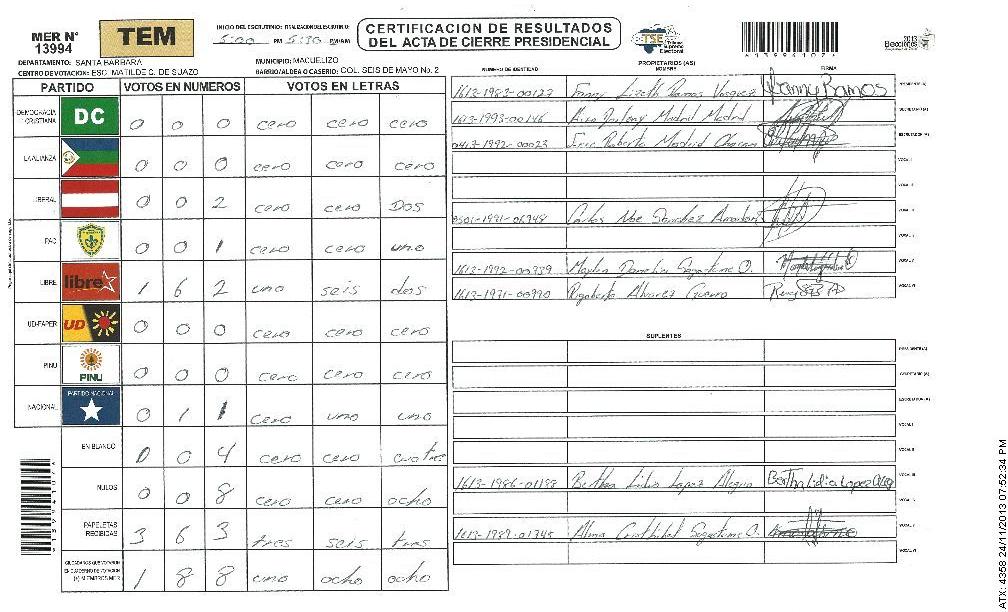 MER N° 13994
TEM
INICIO DEL ESCRUTINIO: FINALIZACION DEL ESCRUTINIO:
5:00 PM 5:30 PM/AM
CERTIFICACION DE RESULTADOS
DEL ACTA DE CIERRE PRESIDENCIAL
TSE Tribunal Supremo Electoral
2013
DEPARTAMENTO: SANTA BARBARA
MUNICIPIO: MACUELIZO
CENTRO DE VOTACION: ESC. MATILDE C. DE SUAZO
BARRIO/ALDEA O CASERIO: COL. SEIS DE MAYO No. 2
PARTIDO VOTOS EN NUMEROS VOTOS EN LETRAS
DEMOCRACIA CRISTIANA DC 0 0 0 cero cero cero
LA ALIANZA 0 0 0 cero cero cero
LIBERAL 0 0 2 cero cero Dos
PAC 0 0 1 cero cero uno
LIBRE libre 1 6 2 uno seis dos
UD-FAPER UD 0 0 0 cero cero cero
PINU PINU 0 0 0 cero cero cero
NACIONAL PARTIDO NACIONAL 0 1 1 cero uno uno
EN BLANCO 0 0 4 cero cero cuatro
NULOS 0 0 8 cero cero ocho
PAPELETAS RECIBIDAS 3 6 3 tres seis tres
CIUDADANOS QUE VOTARON EN CUADERNO DE VOTACION (+) MIEMBROS MER 1 8 8 uno ocho ocho
PROPIETARIOS (AS)
NUMERO DE IDENTIDAD NOMBRE FIRMA
1613-1983-00123 Fanny Lizeth Ramos Vasquez Fanny Ramos PRESIDENTE(A)
1613-1993-00146 Madrid Madrid SECRETARIO(A)
0413-1992-00023 Roberto Madrid Chacon ESCRUTADOR(A)
VOCAL I
VOCAL II
0501-1991-06948 Carlos Noe Sanchez VOCAL III
1613-1992-00339 VOCAL V
1613-1971-00990 Rigoberto Alvarez Guerro VOCAL VI
SUPLENTES
PRESIDENTE(A)
SECRETARIO (A)
ESCRUTADOR(A)
VOCAL I
VOCAL II
1613-1986-01198 Bertha Lidia Lopez Bertha Lidia Lopez VOCAL III
1613-1989-01345 Alma VOCAL V
VOCAL VI
ATX: 4358 24/11/2013 07:52:34 PM